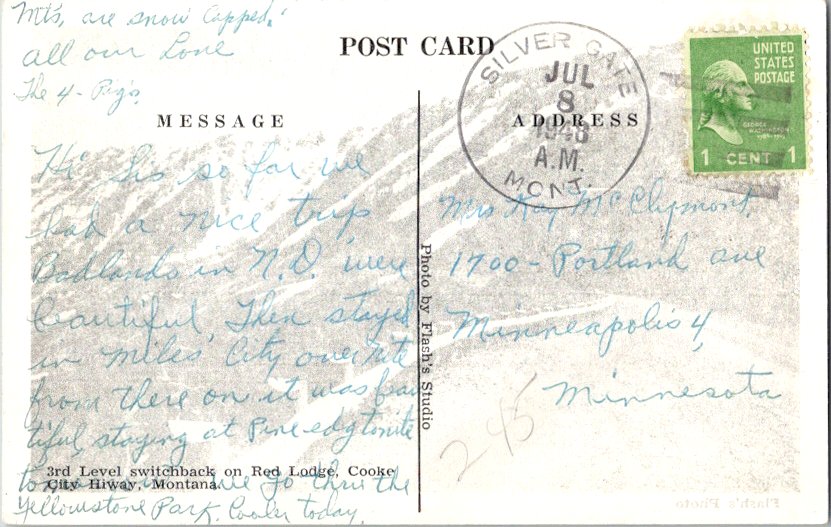 Mts, are snow Capped.
all our Love
The 4-Pig's
POST CARD
SILVER GATE
JUL
8
1948
A.M.
MONT.
UNITED
STATES
POSTAGE
GEORGE
WASHINGTON
1 CENT 1
MESSAGE
ADDRESS
Hi Sis so far we
had a nice trip
Badlands in N.D. were
beautiful. Then stayed
in Miles City over nite
from there on it was beau
tiful, staying at Pine edg tonite
we go thru the
Yellowstone Park. Cooler today.
3rd Level switchback on Red Lodge, Cooke
City Hiway, Montana.
Photo by Flash's Studio
Mrs Ray McClymont,
1700 - Portland ave
Minneapolis 4,
Minnesota
245
Flash's Photo